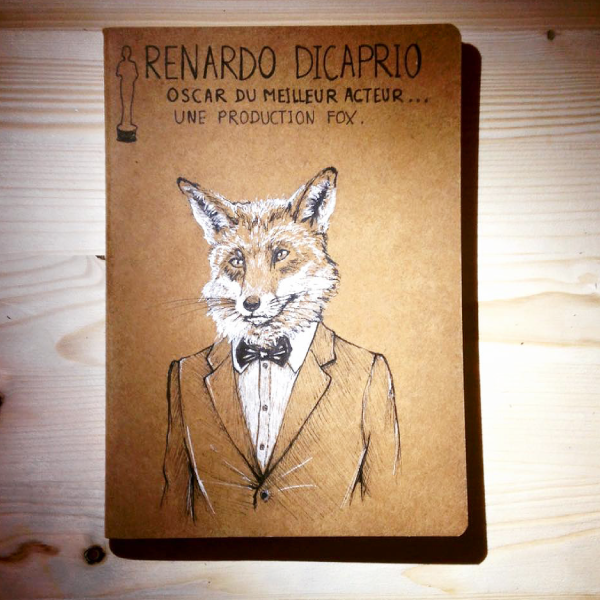 RENARDO DICAPRIO
OSCAR DU MEILLEUR ACTEUR...
UNE PRODUCTION FOX.